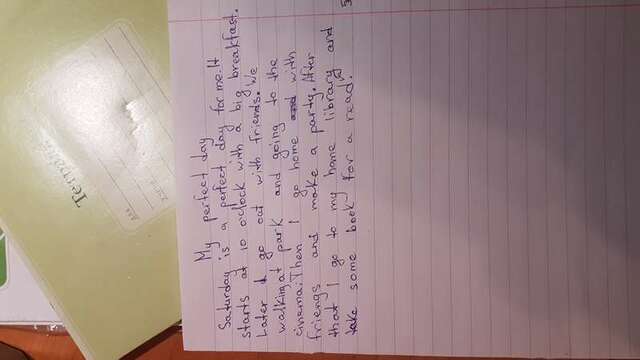 My perfect day
Saturday is a perfect day for me. It
starts at 10 o'clock with a big breakfast.
Later I go out with friends. We
walking at park and going to the
cinama. Then I go home and with
friengs and make a party. After
that I go to my home library and
take some book for a read.